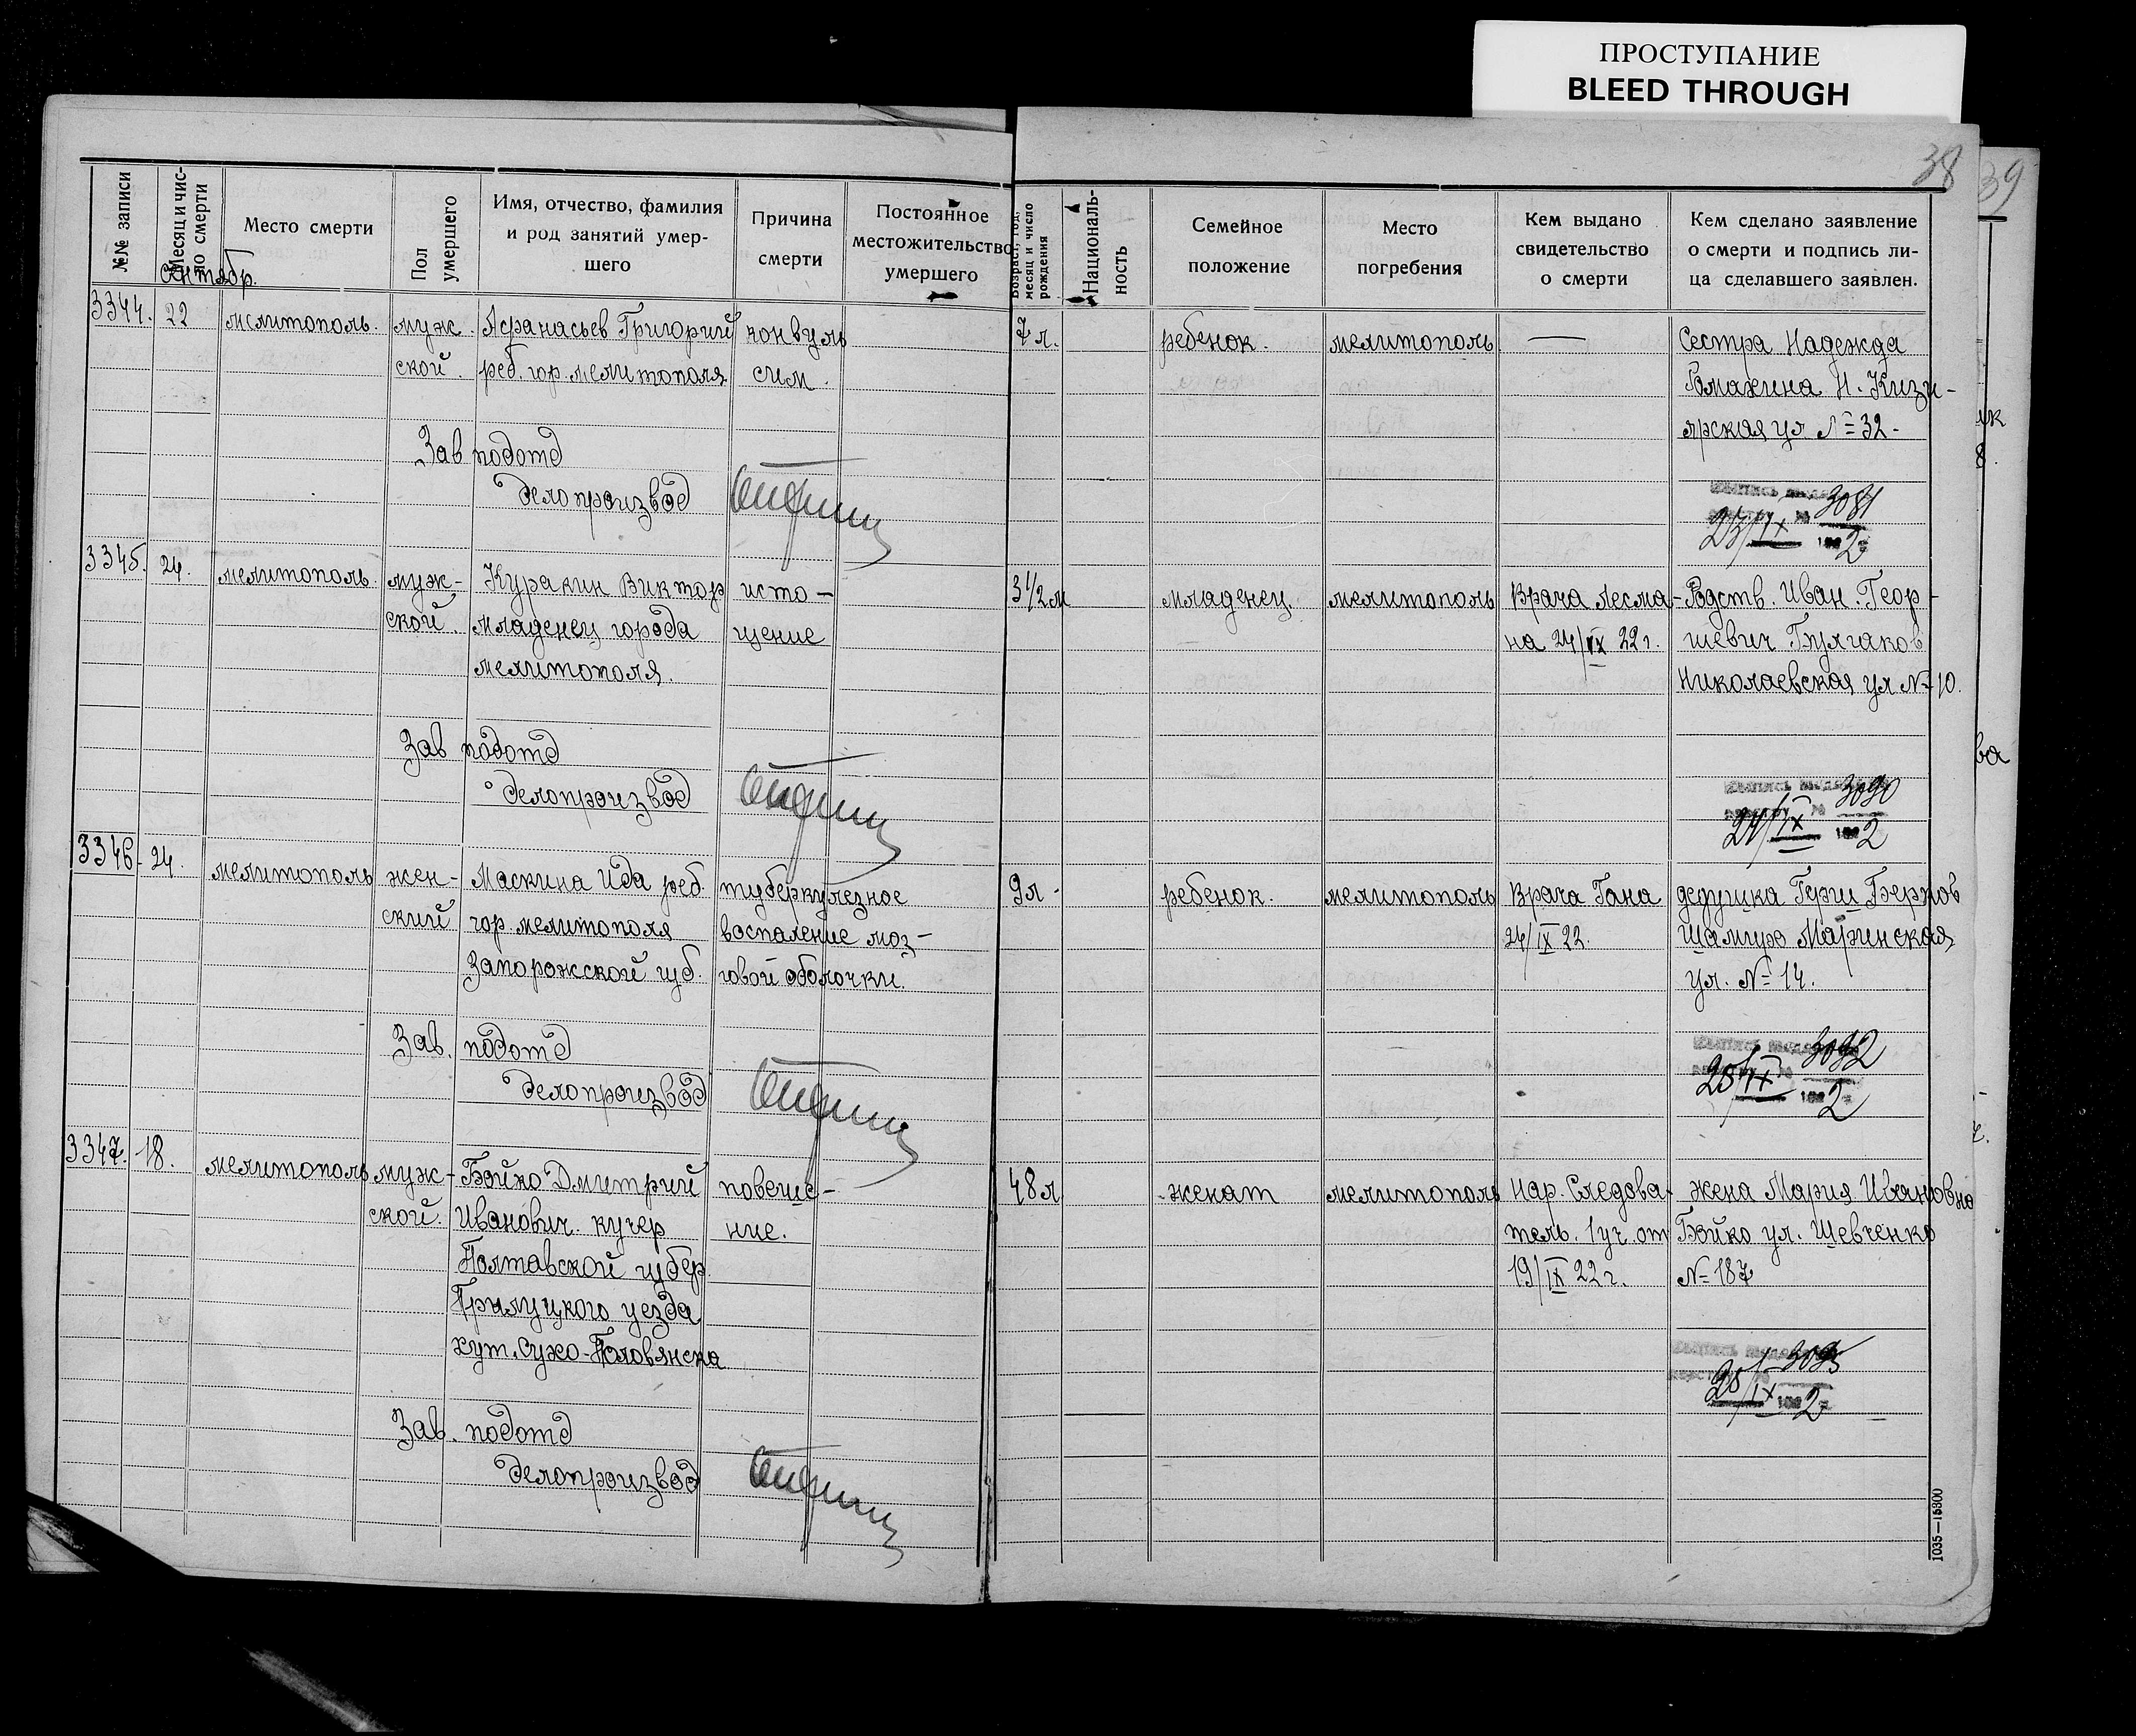 ПРОСТУПАНИЕ
BLEED THROUGH
38
39
№№ записи
Месяц и чис-
ло смерти
Место смерти
Пол
умершего
Имя, отчество, фамилия
и род занятий умер-
шего
Причина
смерти
Постоянное
местожительство
умершего
Возраст, год,
месяц и число
рождения
Националь-
ность
Семейное
положение
Место
погребения
Кем выдано
свидетельство
о смерти
Кем сделано заявление
о смерти и подпись ли-
ца сделавшего заявлен.
Сентябр.
3344. 22 мелитополь. муж. Афанасьев Григорий конвуль 7 л. ребенок. мелитополь — Сестра Надежда
ской. реб. гор. мелитополя сим. Ромахина Н. Кизи-
ярская ул № 32-
Зав подотд
делопроизвод
3081
23/IX 192 2
3345. 24. мелитополь. муж- Куракин Виктор исто- 3 1/2 м младенец. мелитополь Врача Лесма- Родств. Иван. Геор-
ской. младенец города щение на 24/IX 22 г. гиевич Булгаков
мелитополя. Николаевская ул № 10.
Зав подотд
делопроизвод
3090
24/IX 192 2
3346- 24. мелитополь жен- Маскина Ида реб. туберкулезное 9 л- ребенок. мелитополь Врача Гана дедушка
ский гор. мелитополя воспаление моз- 24/IX 22. Маринская
Запорожской губ. говой оболочки. ул. № 14.
Зав. подотд
делопроизвод
3092
25/IX 192 2
3347. 18. мелитополь муж- Бойко Дмитрий повеше- 48 л женат мелитополь Нар. Следова- жена Мария Ивановна
ской. Иванович кучер ние. тель. 1 уч. от Бойко ул. Шевченко
Полтавской губер 19/IX 22 г. № 187
Прилуцкого уезда
хут. Сухо-Половянска
Зав. подотд
делопроизвод
25/IX 192 2
1035—15300